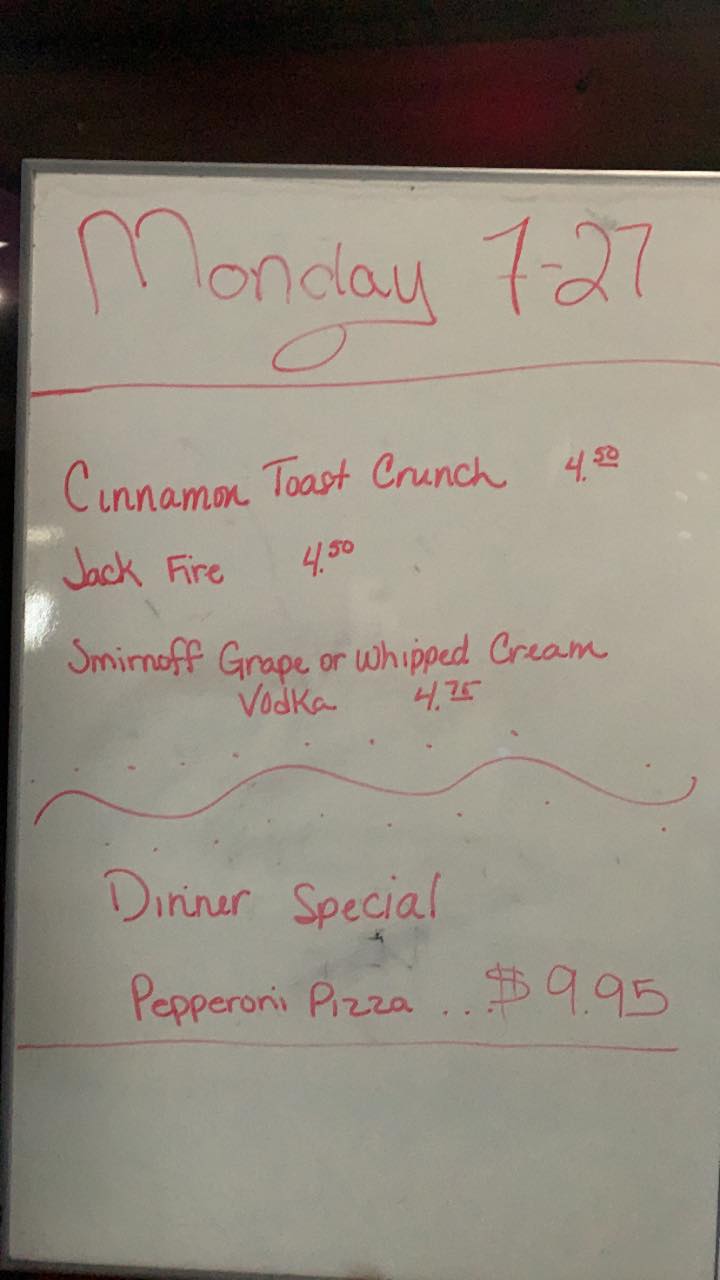 Monday 7-27
Cinnamon Toast Crunch 4.50
Jack Fire 4.50
Smirnoff Grape or Whipped Cream
Vodka 4.75
Dinner Special
Pepperoni Pizza ... $9.95